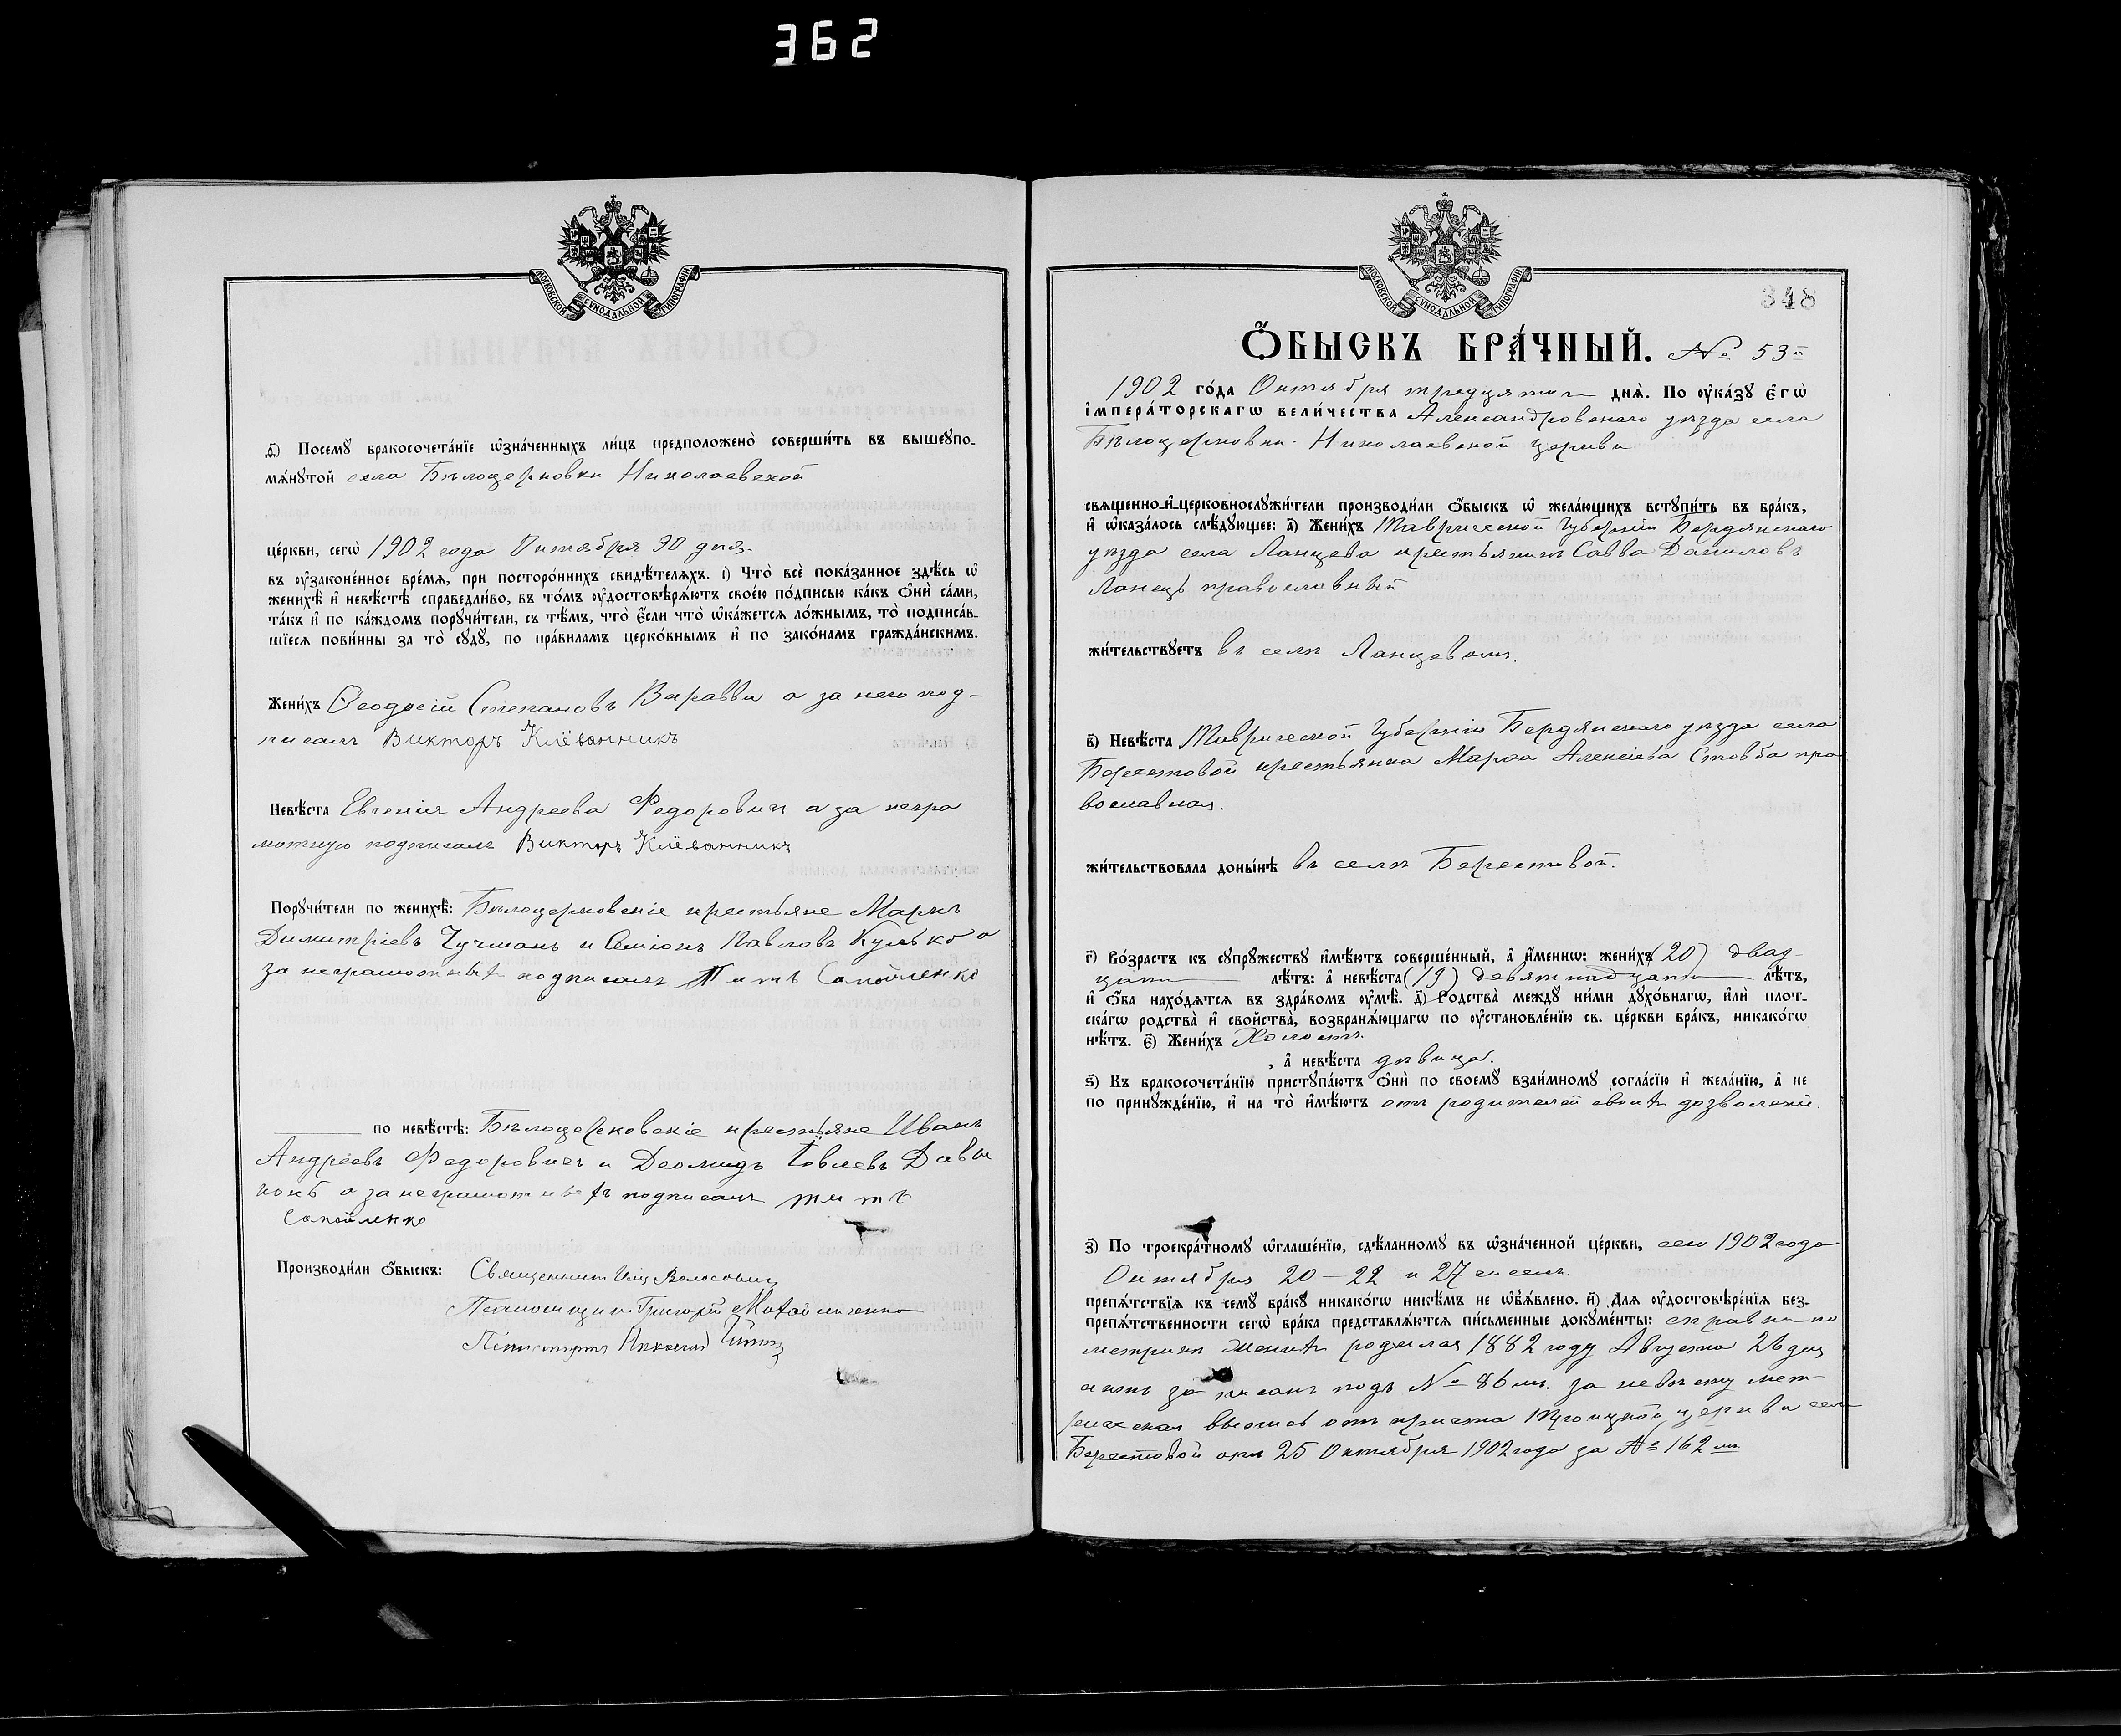 362
МОСКОВСКОЙ СУНОДАЛЬНОЙ ТИПОГРАФІИ
ѳ҃) Посемꙋ бракосочета́нїе ѡ҆зна́ченныхъ ли́цъ предположено̀ соверши́ть въ вышеꙋпо-
мѧ́нꙋтой села Бѣлоцерковки Николаевской
це́ркви, сегѡ̀ 1902 года Октября 30 дня.
въ ᲂу҆законе́нное вре́мѧ, при посторо́ннихъ свидѣ́телѧхъ. і҃) Что̀ всѐ пока́занное здѣ́сь ѡ҆
женихѣ̀ и҆ невѣ́стѣ справедли́во, въ то́мъ ᲂу҆достовѣрѧ́ютъ свое́ю по́дписью ка́къ ѻ҆нѝ са́ми,
та́къ и҆ по ка́ждомъ порꙋчи́тели, съ тѣ́мъ, что̀ є҆́сли что̀ ѡ҆ка́жетсѧ ло́жнымъ, то̀ подписа́в-
шїесѧ пови́нны за то̀ сꙋдꙋ̀, по пра́виламъ церко́внымъ и҆ по зако́намъ гражда́нскимъ.
Жени́хъ Ѳеодосій Степановъ Варавва а за него под-
писалъ Викторъ Клёванникъ
Невѣ́ста Евгенія Андреева Федоровичъ а за негра
мотную подписалъ Викторъ Клёванникъ
Порꙋчи́тели по женихѣ̀: Бѣлоцерковскіе крестьяне Маркъ
Димитріевъ Чучманъ и Семіонъ Павловъ Кулько а
за неграмотныхъ подписалъ Титъ Самойленко
по невѣ́стѣ: Бѣлоцерковскіе крестьяне Иванъ
Андреевъ Федоровичъ и Деомидъ Іовлевъ
а за неграмотныхъ подписалъ Титъ
Самойленко
Производи́ли ѻ҆́быскъ: Священникъ Волосовичъ
Псаломщикъ Григорій
Николай
МОСКОВСКОЙ СУНОДАЛЬНОЙ ТИПОГРАФІИ
348
Ѻ҆́БЫСКЪ БРА́ЧНЫЙ. № 53й
1902 го́да Октября тридцатаго днѧ̀. По ᲂу҆ка́зꙋ є҆гѡ̀
і҆мпера́торскагѡ вели́чества Александровскаго уѣзда села
Бѣлоцерковки Николаевской церкви
свѧщенно-и҆-церковнослꙋжи́тели производи́ли ѻ҆́быскъ ѡ҆ жела́ющихъ встꙋпи́ть въ бра́къ,
и҆ ѡ҆каза́лось слѣ́дꙋющее: а҃) Жени́хъ Таврической Губерніи Бердянскаго
уѣзда села Ланцева крестьянинъ Савва Даниловъ
Ланецъ православный
жи́тельствꙋетъ въ селѣ Ланцевомъ.
в҃) Невѣ́ста Таврической Губерніи Бердянскаго уѣзда села
Берестовой крестьянка Марѳа Алексіева Стовба пра
вославная.
жи́тельствовала доны́нѣ въ селѣ Берестовой.
г҃) Во́зрастъ къ сꙋпрꙋжествꙋ и҆мѣ́ютъ соверше́нный, а҆ и҆́менно: жени́хъ (20) двад-
цати лѣ́тъ: а҆ невѣ́ста (19) девятнадцати лѣ́тъ,
и҆ ѻ҆́ба нахо́дѧтсѧ въ здра́вомъ ᲂу҆мѣ̀. д҃) Родства̀ междꙋ ни́ми дꙋхо́внагѡ, и҆лѝ плот-
ска́гѡ родства̀ и҆ свойства̀, возбранѧ́ющагѡ по ᲂу҆становле́нїю св. це́ркви бра́къ, никако́гѡ
нѣ́тъ. є҃) Жени́хъ Холостъ.
, а҆ невѣ́ста дѣвица.
ѕ҃) Къ бракосочета́нїю пристꙋпа́ютъ ѻ҆нѝ по своемꙋ̀ взаи́мномꙋ согла́сїю и҆ жела́нїю, а҆ не
по принꙋжде́нїю, и҆ на то̀ и҆мѣ́ютъ отъ родителей своихъ дозволеніе.
з҃) По троекра́тномꙋ ѡ҆глаше́нїю, сдѣ́ланномꙋ въ ѡ҆зна́ченной це́ркви, сего 1902 года
Октября 20 — 22 и 27 чиселъ.
препѧ́тствїѧ къ семꙋ̀ бра́кꙋ никако́гѡ никѣ́мъ не ѡ҆б̾ѧ́влено. и҃) Для ᲂу҆достовѣре́нїѧ без-
препѧ́тственности сегѡ̀ бра́ка представлѧ́ютсѧ пи́сьменные докꙋме́нты: справка по
метрикѣ женихъ родился 1882 году Августа 26 дня
актъ записанъ подъ № 86 м. за невѣсту мет-
рическая выпись отъ причта Троицкой церкви села
Берестовой отъ 25 Октября 1902 года за № 162 мъ